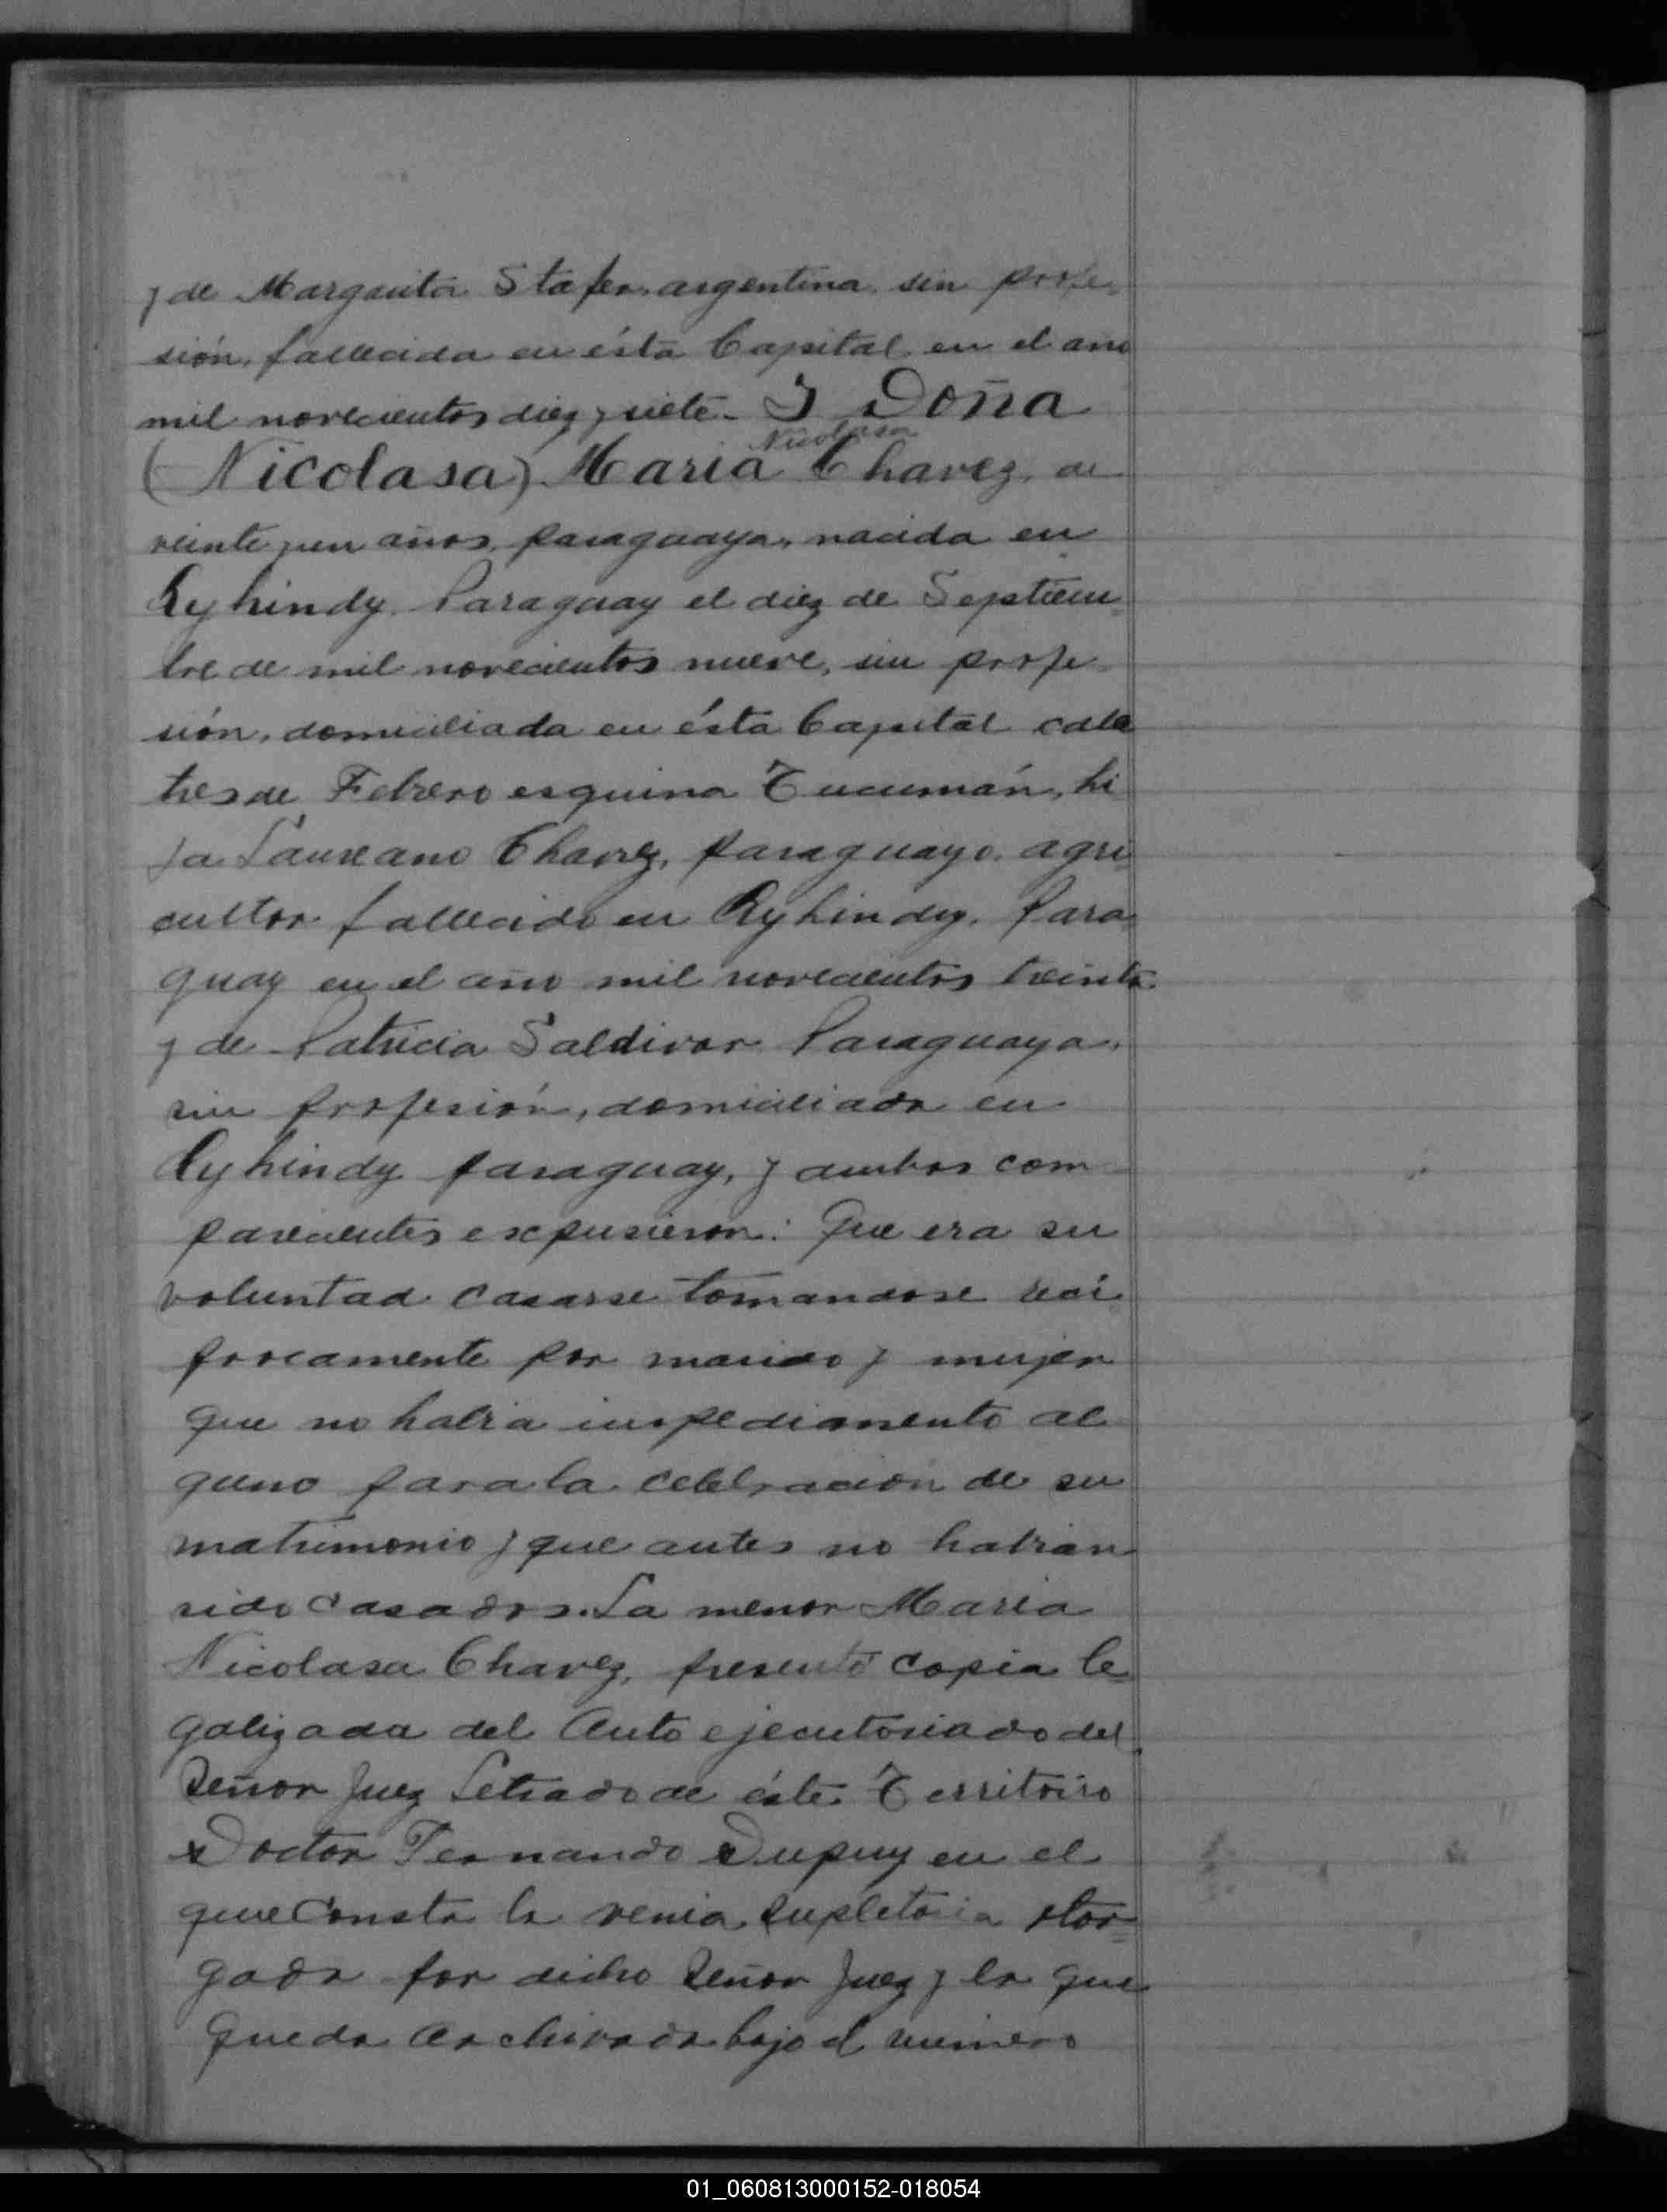 y de Margarita Stafer. argentina. sin profe-
sión. fallecida en ésta Capital en el año
mil novecientos diez y siete. Y Doña
Nicolasa
(Nicolasa) Maria Chavez, de
veinte y un años, paraguaya, nacida en
Kyhindy. Paraguay el diez de Septiem-
bre de mil novecientos nueve, sin profe-
sión, domiciliada en ésta Capital calle
tres de Febrero esquina Tucumán, hi
ja Laureano Chavez, paraguayo. agri
cultor. fallecido en Kyhindy. Para-
guay en el año mil novecientos treinta
y de Patricia Saldivar Paraguaya.
sin profesión, domiciliada en
Kyhindy paraguay, y ambos com-
parecientes expusieron: Que era su
voluntad casarse tomandose recí
procamente por marido y mujer
que no habia impedimento al
guno para la celebración de su
matrimonio y que antes no habian
sido casados. La menor Maria
Nicolasa Chavez, presentó copia le
galizada del Auto ejecutoriado del
Señor Juez Letrado de éste Territoiro
Doctor Fernando Dupuy en el
que Consta la venia supletoria otor-
gada por dicho Señor Juez y la que
queda archivada bajo el número
01_060813000152-018054